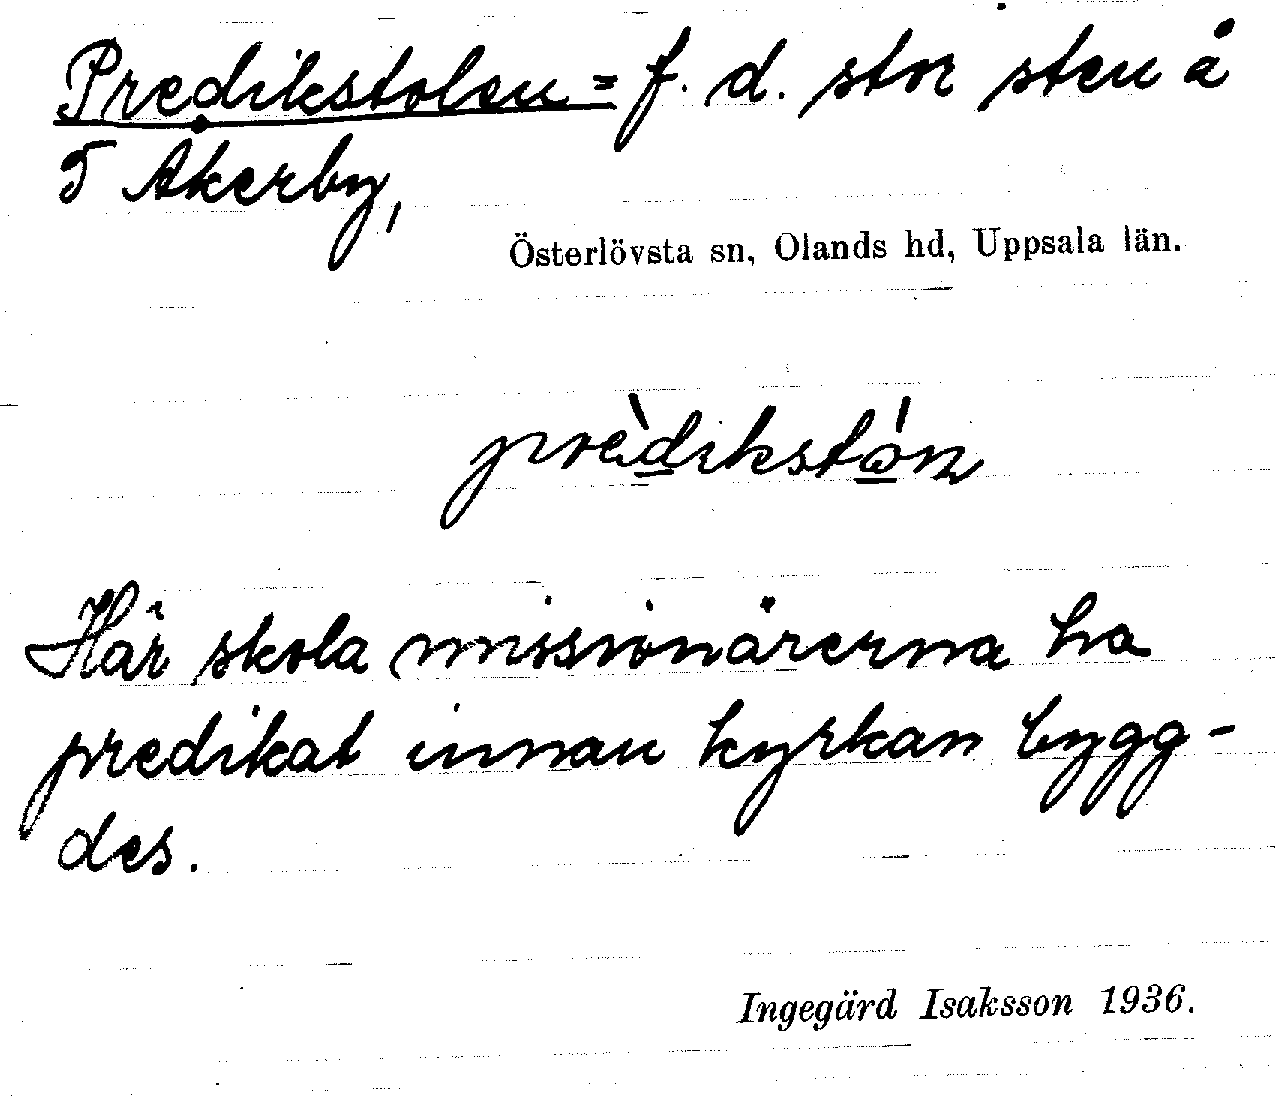 Predikstolen = f. d. stor sten å
T Åkerby,
Österlövsta sn, Olands hd, Uppsala län.
prèdikstón
Här skola missionärerna ha
predikat innan kyrkan bygg-
des.
Ingegärd Isaksson 1936.